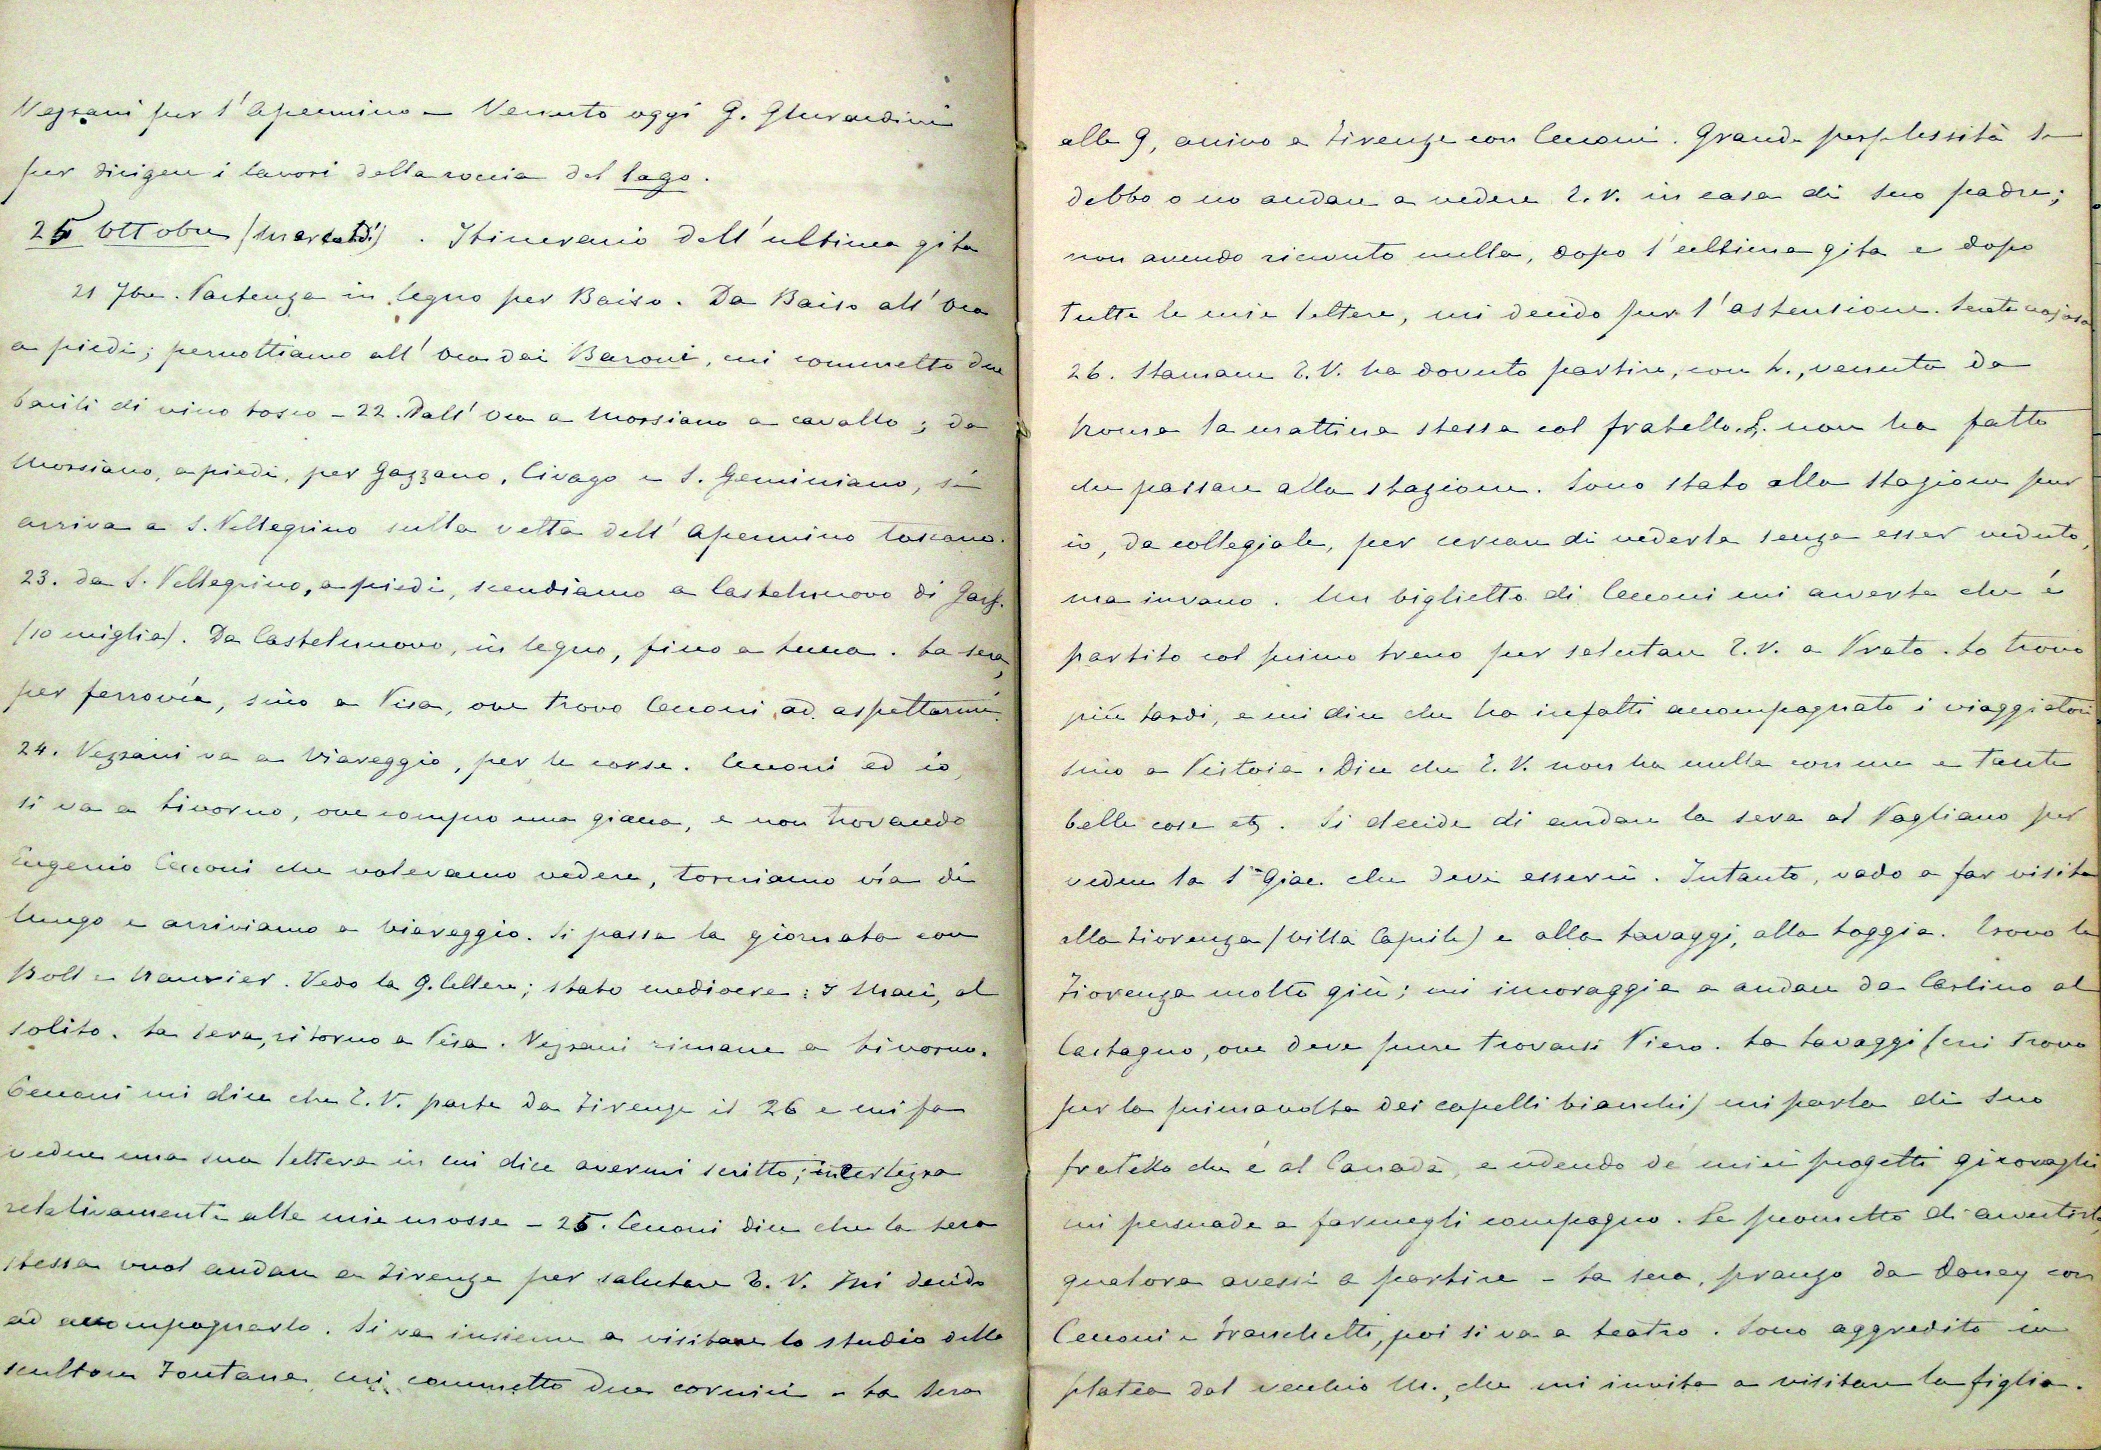 Vezzani per l'Apennino – Venuto oggi G. Gherardini
per dirigere i lavori della roccia del lago.
25 Ottobre (Martedì). Itinerario dell'ultima gita
21 7bre. Partenza in legno per Baiso. Da Baiso all' Oca
a piedi; pernottiamo all' Oca dai Baroni, cui commetto due
barili di vino tosco – 22. Dall' Oca a Morsiano a cavallo; da
Morsiano, a piedi, per Gazzano, Civago e S. Geminiano, si
arriva a S. Pellegrino sulla vetta dell' Apennino toscano.
23. da S. Pellegrino, a piedi, scendiamo a Castelnuovo di Garf.
(10 miglia). Da Castelnuovo, in legno, fino a Lucca. La sera,
per ferrovia, sino a Pisa, ove trovo Cecconi ad aspettarmi.
24. Vezzani va a Viareggio, per le corse. Cecconi ed io,
si va a Livorno, ove compro una giacca, e non trovando
Eugenio Cecconi che volevamo vedere, torniamo via di
lungo e arriviamo a Viareggio. Si passa la giornata con
Bolt e . Vedo la G. ; stato mediocre; I , al
solito. La sera, ritorno a Pisa. Vezzani rimane a Livorno.
Cecconi mi dice che E. V. parte da Firenze il 26 e mi fa
vedere una sua lettera in cui dice avermi scritto; incertezza
relativamente alle mie mosse – 25. Cecconi dice che la sera
stessa vuol andare a Firenze per salutare E. V. Mi decido
ad accompagnarlo. Si va insieme a visitare lo studio dello
scultore Fontana, cui commetto due cornici – La sera
alle 9, arrivo a Firenze con Cecconi. Grande perplessità se
debbo o no andare a vedere E. V. in casa di suo padre;
non avendo ricevuto nulla, dopo l'ultima gita e dopo
tutte le mie lettere, mi decido per l'astensione.
26. Stamane E. V. ha dovuto partire, con L., venuto da
Roma la mattina stessa col fratello. L. non ha fatto
che passare alla stazione. Sono stato alla stazione pur
io, da collegiale, per cercare di vederla senza esser veduto,
ma invano. Un biglietto di Cecconi mi avverte che è
partito col primo treno per salutare E. V. a Prato. Lo trovo
più tardi, e mi dice che ha infatti accompagnato i viaggiatori
sino a Pistoia. Dice che E. V. non ha nulla con me e tante
belle cose etc. Si decide di andare la sera al Pagliano per
vedere la S.ª Giac. che deve esservi. Intanto, vado a far visita
alla Fiorenza (Villa Caprile) e alla Lavaggi, alla Loggia. Trovo la
Fiorenza molto giù; mi incoraggia a andare da Carlino al
Castagno, ove deve pure trovarsi Piero. La Lavaggi (cui trovo
per la prima volta dei capelli bianchi) mi parla di suo
fratello che è al Canadà, e udendo de' miei progetti girovaghi
mi persuade a farmegli compagno. Le prometto di avvertirla,
qualora avessi a partire – La sera, pranzo da Doney con
Cecconi e Franchetti, poi si va a teatro. Sono aggredito in
platea dal vecchio M., che mi invita a visitare la figlia.